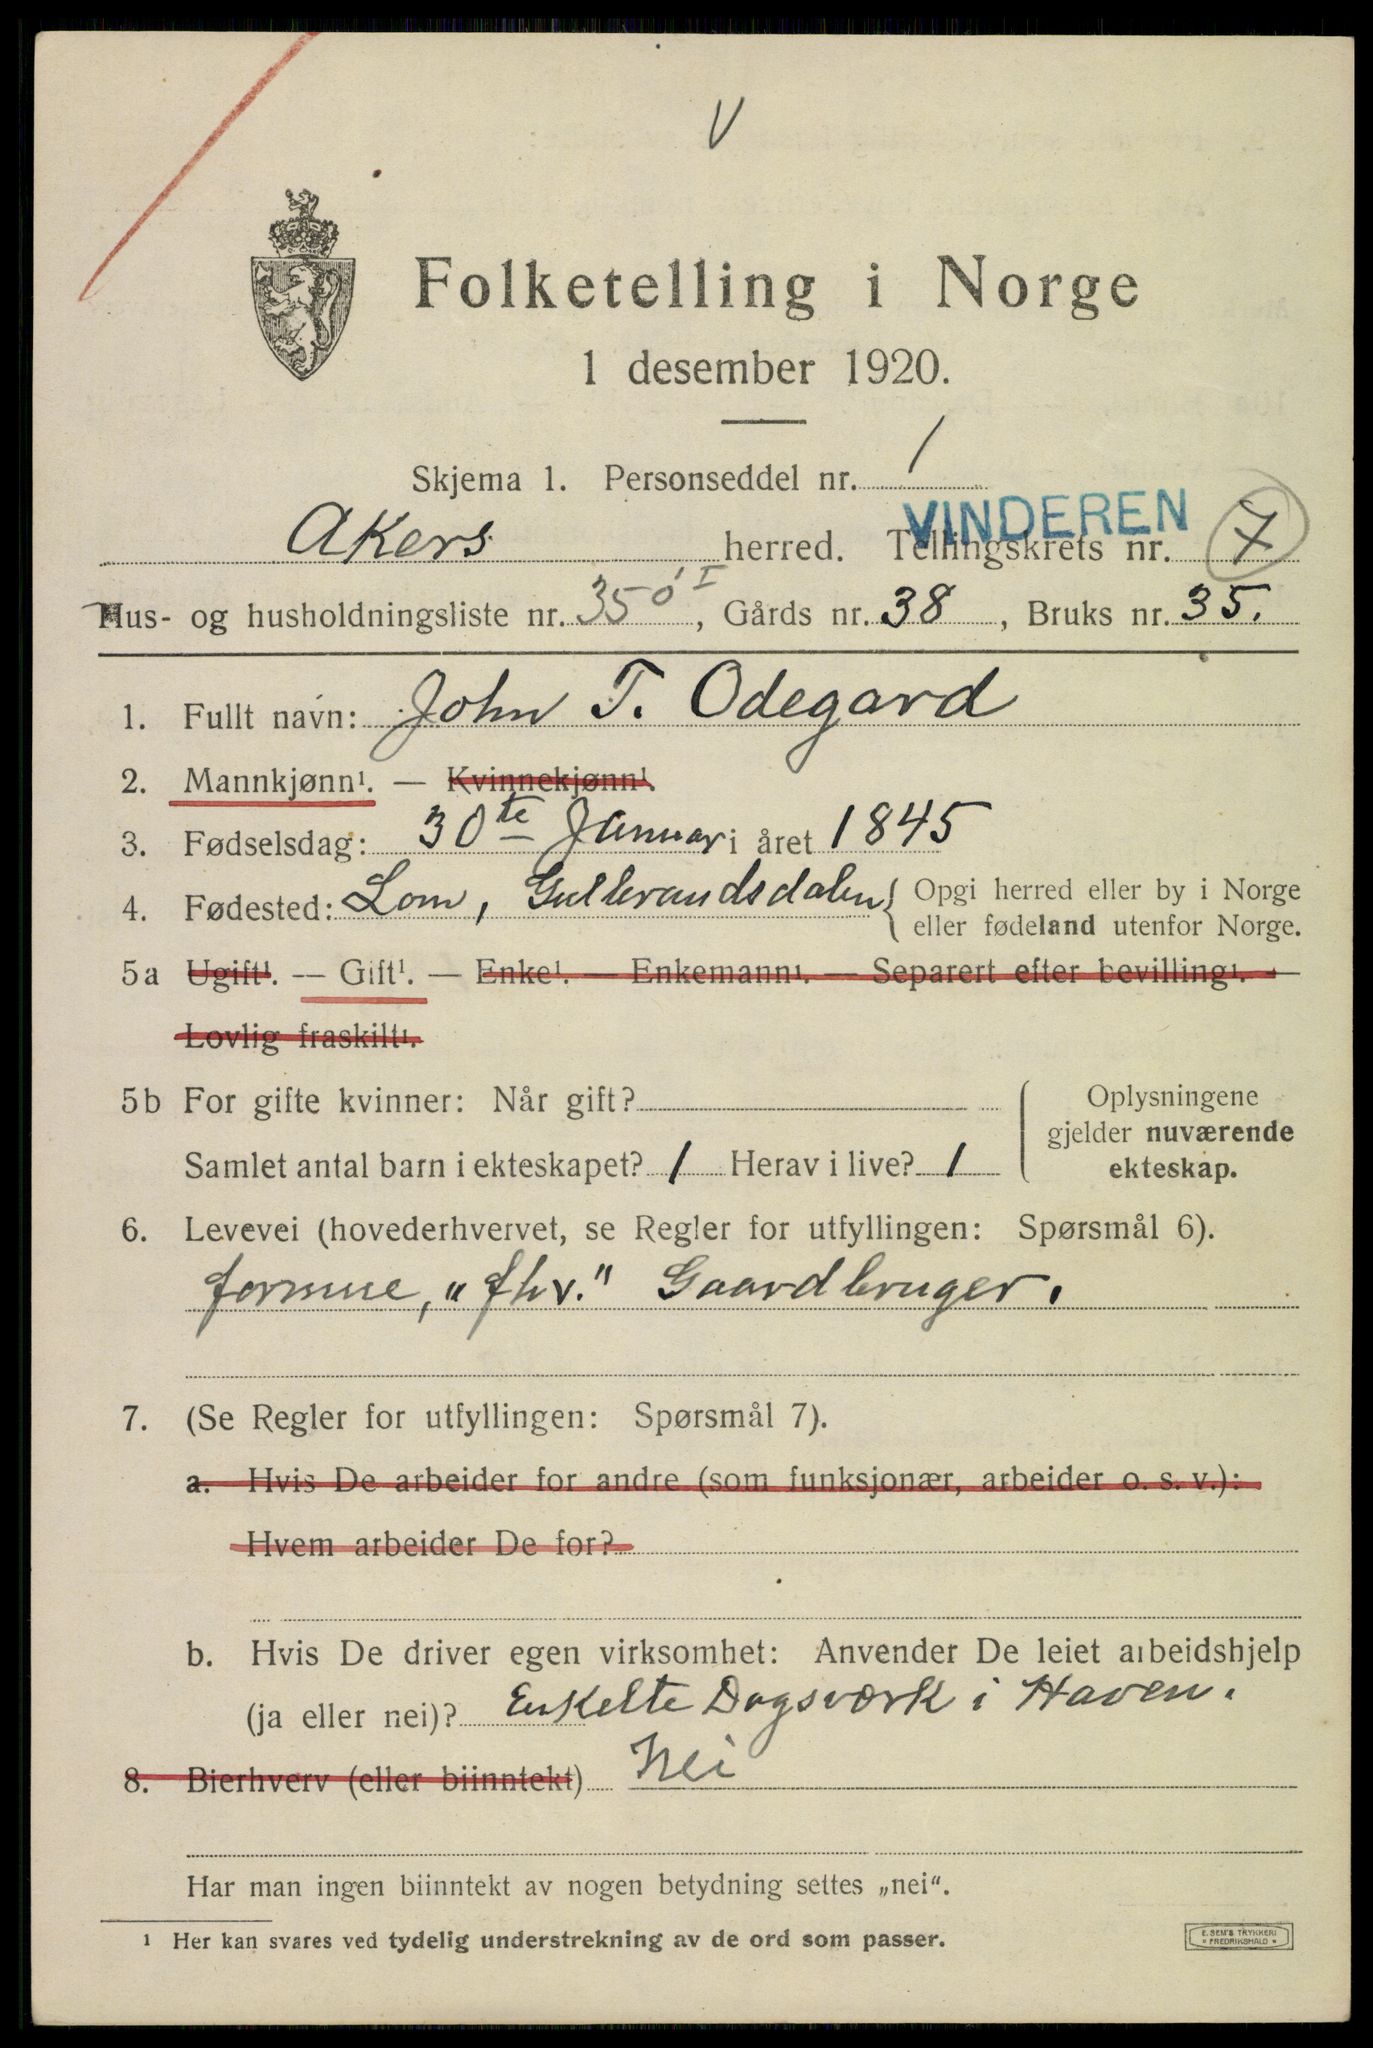 V
Folketelling i Norge
1 desember 1920.
Skjema 1. Personseddel nr. 1
VINDEREN
Akers herred. Tellingskrets nr. 7
Hus- og husholdningsliste nr. 350 I, Gårds nr. 38, Bruks nr. 35.
1. Fullt navn: John T. Odegard
2. Mannkjønn¹. — Kvinnekjønn¹.
3. Fødselsdag: 30te Januar i året 1845
4. Fødested: Lom, Gulbrandsdalen { Opgi herred eller by i Norge
eller fødeland utenfor Norge.
5a Ugift¹. — Gift¹. — Enke¹. — Enkemann¹. — Separert efter bevilling¹. —
Lovlig fraskilt¹.
5b For gifte kvinner: Når gift?
Samlet antal barn i ekteskapet? 1 Herav i live? 1
Oplysningene
gjelder nuværende
ekteskap.
6. Levevei (hovederhvervet, se Regler for utfyllingen: Spørsmål 6).
formue, "fhv." Gaardbruger.
7. (Se Regler for utfyllingen: Spørsmål 7).
a. Hvis De arbeider for andre (som funksjonær, arbeider o. s. v.):
Hvem arbeider De for?
b. Hvis De driver egen virksomhet: Anvender De leiet arbeidshjelp
(ja eller nei)? Enkelte Dagsværk i Haven.
8. Bierhverv (eller biinntekt) Nei
Har man ingen biinntekt av nogen betydning settes „nei“.
¹ Her kan svares ved tydelig understrekning av de ord som passer.
E. SEM'S TRYKKERI
* FREDRIKSHALD *